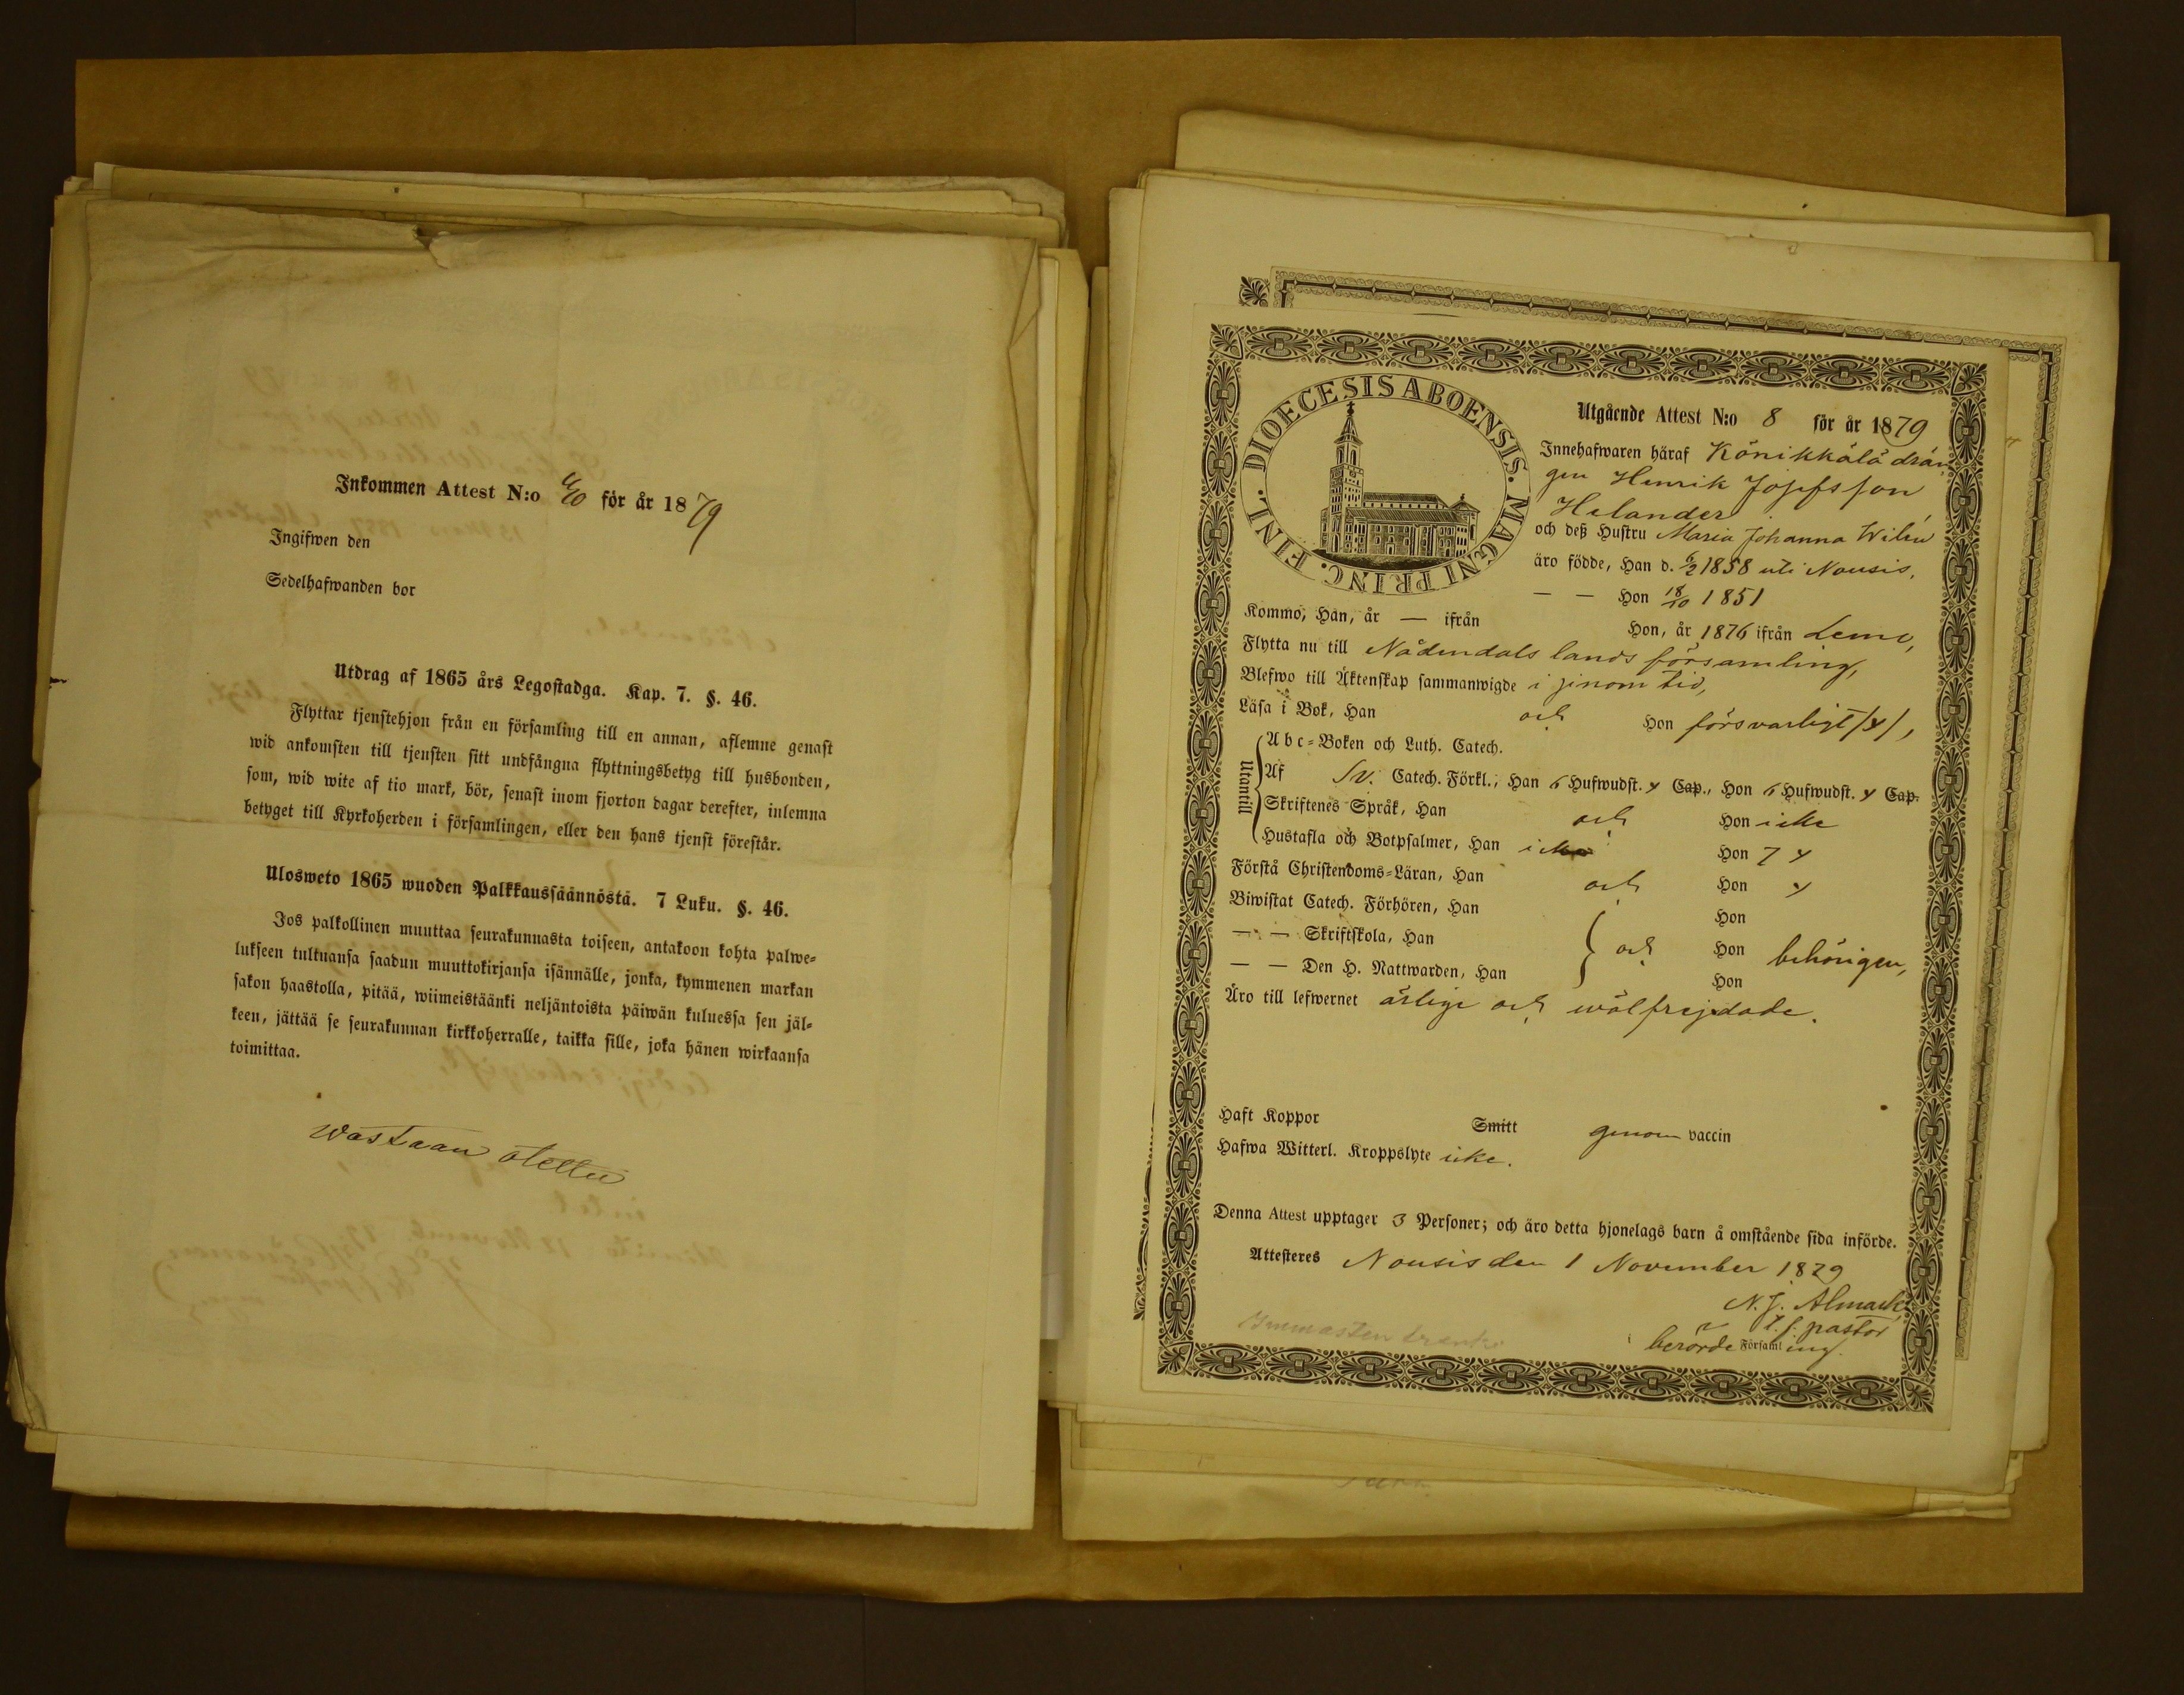 Inkommen Attest N:o för år 1879
Ingifwen den
Sedelhafwanden bor
Utdrag af 1865 års Legostadga. Kap. 7. §. 46.
Flyttar tjenstehjon från en församling till en annan, aflemne genast
wid ankomsten till tjensten sitt undfångna flyttningsbetyg till husbonden,
som, wid wite af tio mark, bör, senast inom fjorton dagar derefter, inlemna
betyget till Kyrkoherden i församlingen, eller den hans tjenst förestår.
Ulosweto 1865 wuoden Palkkaussäännöstä. 7 Luku. §. 46.
Jos palkollinen muuttaa seurakunnasta toiseen, antakoon kohta palwe-
lukseen tultuansa saadun muuttokirjansa isännälle, jonka, kymmenen markan
sakon haastolla, pitää, wiimeistäänki neljäntoista päiwän kuluessa sen jäl-
keen, jättää se seurakunnan kirkkoherralle, taikka sille, joka hänen wirkaansa
toimittaa.
Wastaan otettu
DIOECESIS ABOENSIS. MAGNI PRINC. FINL.
Utgående Attest N:o 8 för år 1879
Innehafwaren häraf Könikkälä drän
gen Henrik Josefsson
Helander
och deß Hustru Maria Johanna Wilén
äro födde, Han d. 6/2 1858 uti Nousis,
— — Hon 18/10 1851
Kommo, Han, år — ifrån Hon, år 1876 ifrån Lemo,
Flytta nu till Nådendals lands församling,
Blefwo till Äktenskap sammanwigde i sinom tid,
Läsa i Bok, Han och Hon försvarligt /4/,
Utantill
Abc-Boken och Luth. Catech.
Af Sv. Catech. Förkl., Han 6 Hufwudst. 4 Cap., Hon 6 Hufwudst. 4 Cap.
Skriftenes Språk, Han och Hon icke
Hustafla och Botpsalmer, Han icke Hon 7 4
Förstå Christendoms-Läran, Han och Hon 4
Biwistat Catech. Förhören, Han Hon
— — Skriftskola, Han och Hon behörigen,
— — Den H. Nattwarden, Han Hon
Äro till lefwernet ärlige och wälfrejdade.
Haft Koppor Smitt genom vaccin
Hafwa Witterl. Kroppslyte icke.
Denna Attest upptager 3 Personer; och äro detta hjonelags barn å omstående sida införde.
Attesteres Nousis den 1 November 1879
N. J. Almark
t. f. pastor
i berörde Församling.